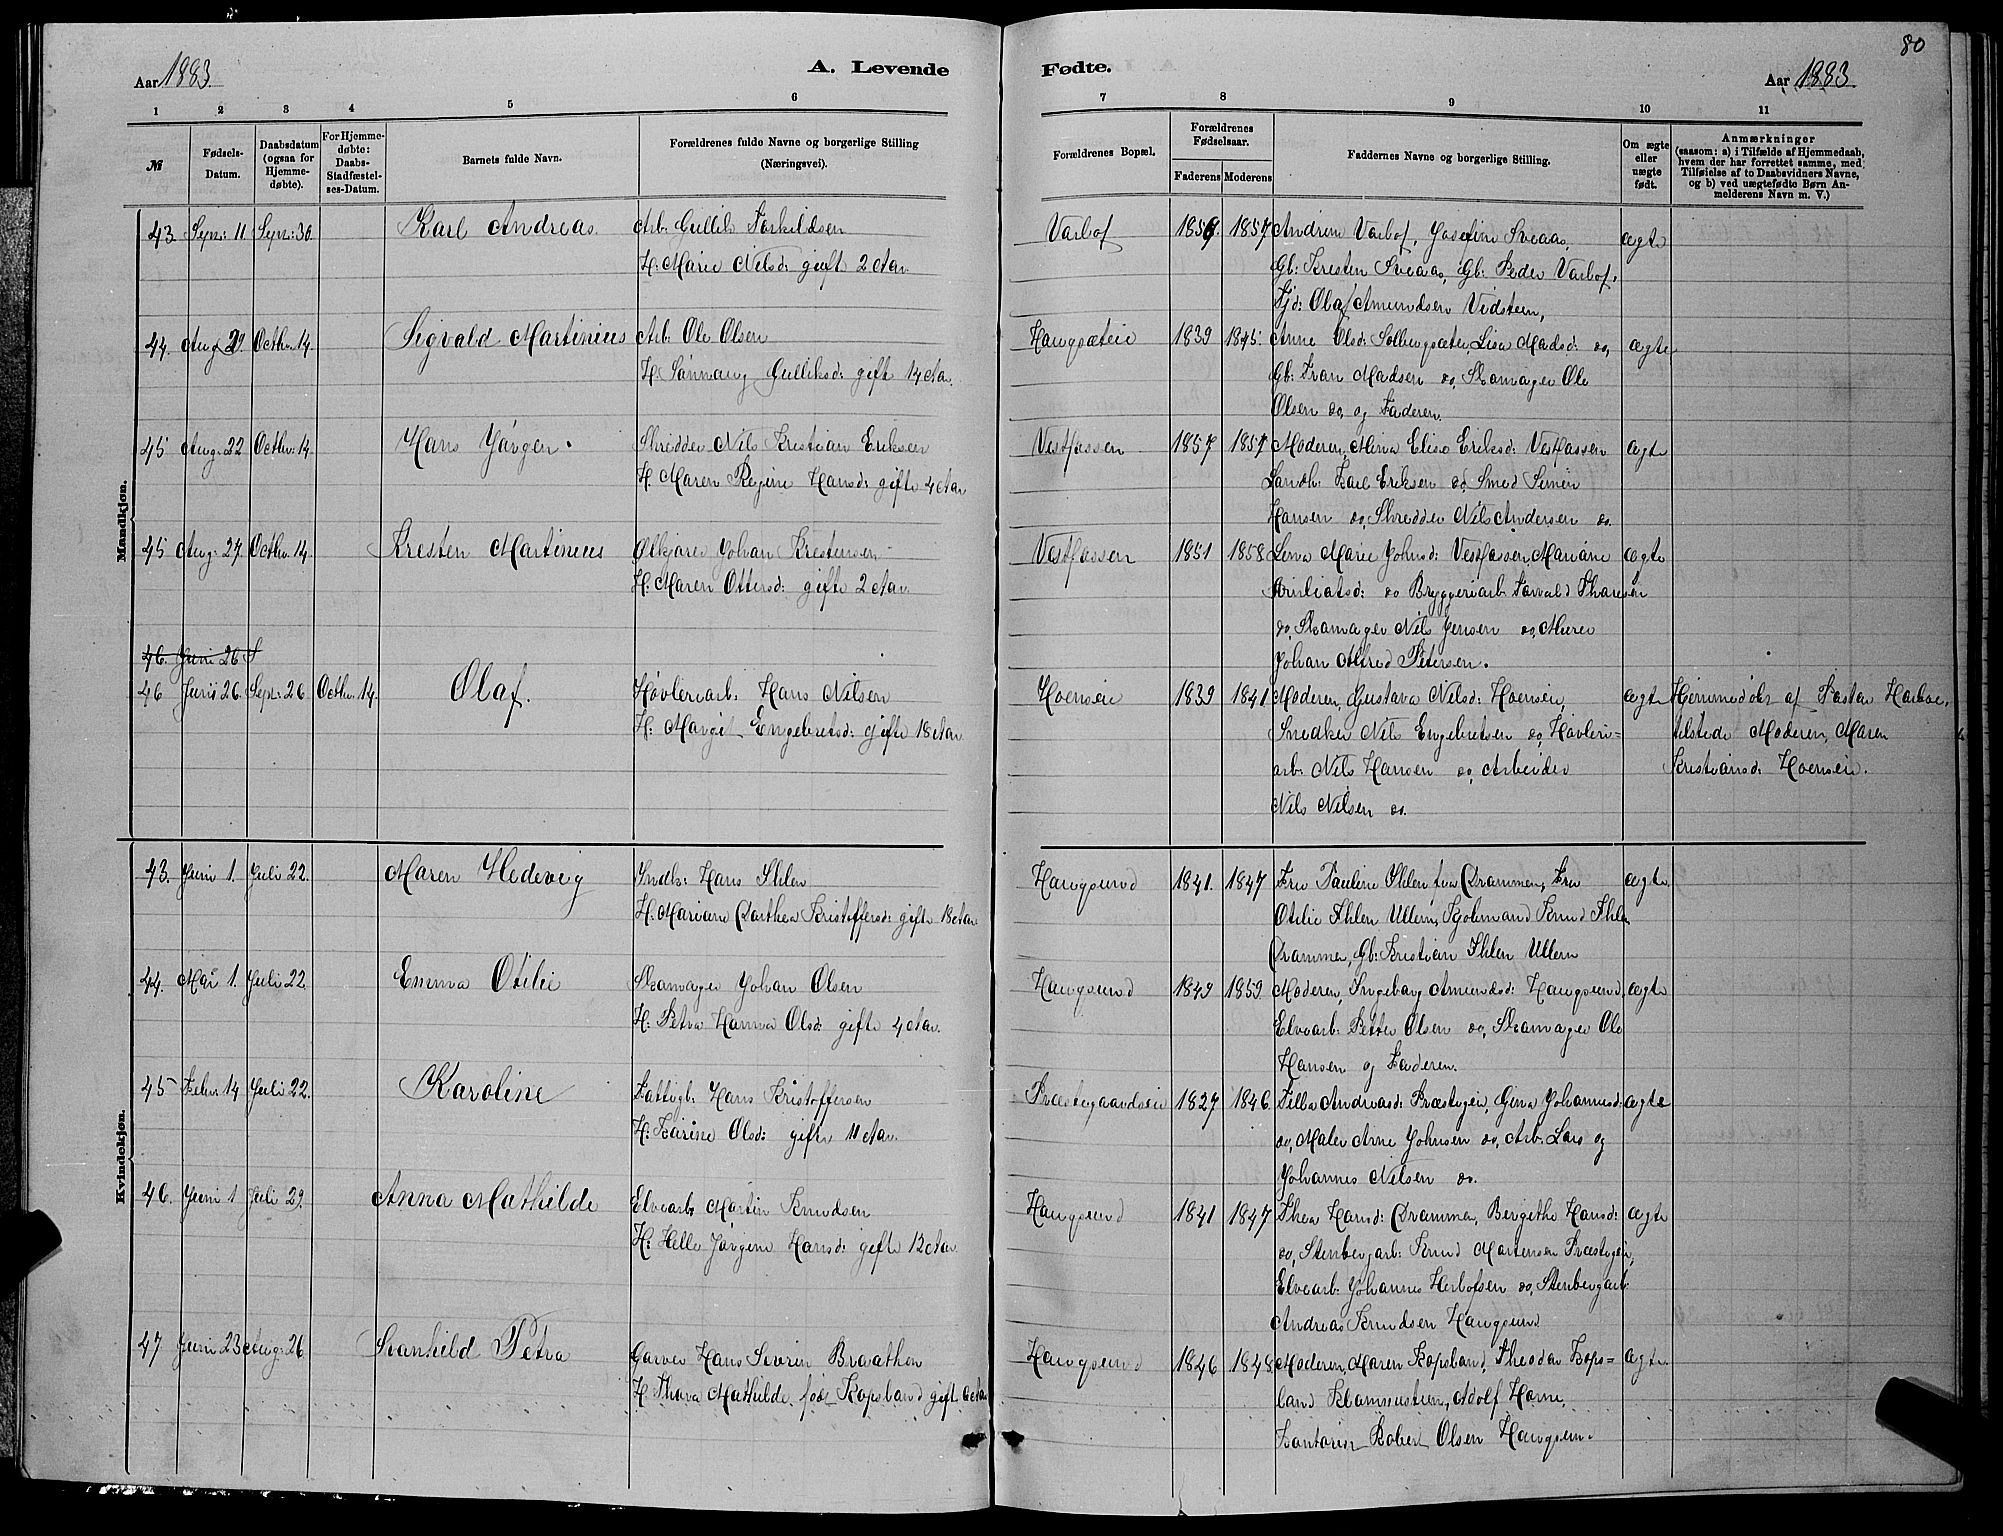 80
Aar 1883.
A. Levende
Fødte.
Aar 1883.
1 2 3 4 5 6 7 8 9 10 11
№
Fødsels-
Datum.
Daabsdatum
(ogsaa for
Hjemme-
døbte).
For Hjemme-
døbte:
Daabs-
Stadfæstel-
ses-Datum.
Barnets fulde Navn.
Forældrenes fulde Navne og borgerlige Stilling
(Næringsvei).
Forældrenes Bopæl.
Forældrenes
Fødselsaar.
Faderens Moderens
Faddernes Navne og borgerlige Stilling.
Om ægte
eller
uægte
født.
Anmærkninger
(saasom: a) i Tilfælde af Hjemmedaab,
hvem der har forrettet samme, med
Tilføielse af to Daabsvidners Navne,
og b) ved uægtefødte Børn An-
melderens Navn m. V.)
Mandkjøn.
43. Sepr: 11. Sepr: 30. Karl Andreas Arb. Gullik Torkildsen
H: Marie Nilsd: gift 2 Aar.
Varlof 1856. 1857 Andrine Varlof, Josefine Sveaas, ægte
Gb: Kresten Sveaas, Gb: Peder Varlof,
Tjd: Olaf Amundsen Vedsteen,
44. Aug 29. Octbr. 14. Sigvald Martinius Arb. Ole Olsen
H. Sønnaug Gulliksd: gift 14 Aar.
Haugsæteie 1839 1845. Anne Olsd: Solbergsæter, Lisa Madsd: do, ægte
Gb: Iran Madsen do, Skomager Ole
Olsen do, og Faderen.
45 Aug: 22 Octbr. 14. Hans Jørgen. Skredder Nils Kristian Eriksen
H. Maren Regine Hansd: gift 4 Aar
Vestfossen 1857 1857 Moderen, Mina Elise Eriksd: Vestfossen ægte
Landh: Karl Eriksen do, Smed Simen
Hansen do, Skredder Nils Andersen do.
45 Aug: 27. Octbr. 14. Kresten Martinius Ølkjører Johan Krestensen
H: Maren Ottersd: gift 2 Aar.
Vestfossen 1851 1858 Lena Marie Johnsd: Vestfossen, Mariane ægte
do Bryggeriarb. Torvald Thoresen
do, Skomager Nils Jensen do, Murer
Johan Alfred Petersen.
46. Juni 26 S
46 Juni 26. Sepr: 26 Octbr. 14. Olaf. Høvleriarb: Hans Nilsen
H: Margit Engebretsd: gift 18 Aar.
Hoenseie 1839 1841 Moderen, Gustava Nilsd: Hoenseie, ægte Hjemmedøbt af Pastor Harboe,
Snedker Nils Engebretsen do, Høvleri- tilstede Moderen, Maren
arb. Nils Hansen do, Arbeider Kristiansd: Hoenseie.
Nils Nilsen do.
Kvindekjøn.
43. Juni 1. Juli 22. Maren Hedevig Snedk: Hans Ihlen
H. Mariane Dorthea Kristoffersd: gift 18 Aar
Haugsund 1841. 1847 Fru Pauline Ihlen fra Drammen, Fru ægte
Otilie Ihlen Ullern, Kjøbmand Knud Ihlen
Drammen, Gb: Kristian Ihlen Ullern
44. Mai 1. Juli 22. Emma Otilie Skomager Johan Olsen
H. Petra Hanna Olsd: gift 4 Aar.
Haugsund 1849 1859. Moderen, Ingeborg Amundsd: Haugsund, ægte
Elvearb: Petter Olsen do, Skomager Ole
Hansen og Faderen.
45 Febr. 14 Juli 22. Karoline Fattigl: Hans Kristoffersen
H: Karine Olsd: gift 11 Aar.
Præstegaardseie 1827 1846. Pilla Andreasd: Præstegeie, Gina Johannesd: ægte
do, Maler Arne Johnsen do, Arb. Lars og
Johannes Nilsen do.
46. Juni 1 Juli 29. Anna Mathilde Elvearb. Martin Knudsen
H: Helle Jørgine Hansd: gift 12 Aar.
Haugsund 1841 1847 Thea Hansd: Drammen, Bergithe Hansd: ægte
do, Stenbergarb: Knud Mortensen Præstegeie,
Elvearb: Johannes Herlofsen do, Stenbergarb:
Andreas Knudsen Haugsund
47 Juni 23 Aug: 26 Svanhild Petra Garver Hans Severin Braathen
H. Thora Mathilde født Kopsland gift 6 Aar
Haugsund 1846 1848. Moderen, Maren Kopsland, Theodor Kops- ægte.
land Adolf Horne,
Kontorist Robert Olsen Haugsun.